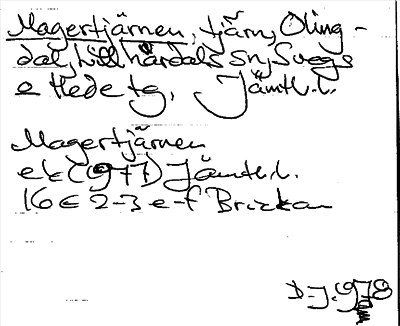 Magertjärnen, tjärn, Öling-
dal, Lillhärdals sn, Svegs
o Hede tg, Jämtl.l.
Magertjärnen
ek (977) Jämtl.l.
16 E 2-3 e-f Brickan
D-J. 1978